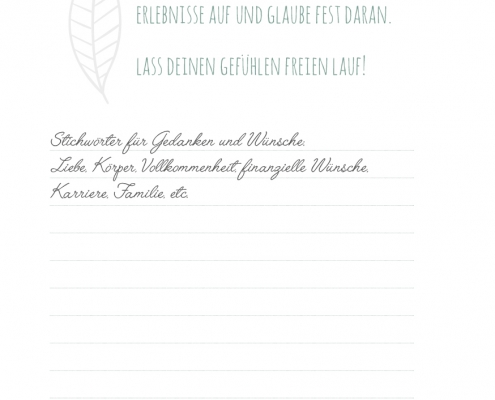 ERLEBNISSE AUF UND GLAUBE FEST DARAN.
LASS DEINEN GEFÜHLEN FREIEN LAUF!
Stichwörter für Gedanken und Wünsche:
Liebe, Körper, Vollkommenheit, finanzielle Wünsche,
Karriere, Familie, etc.